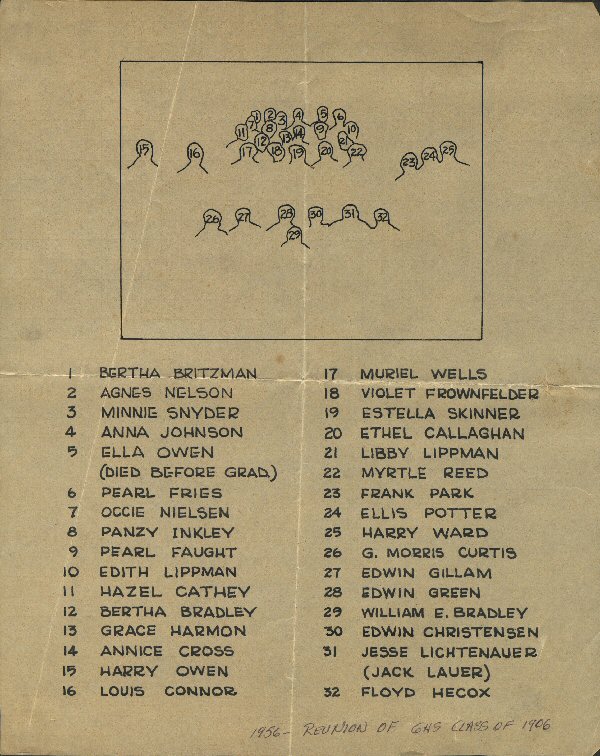 1 2 3 4 5 6 7 8 9 10 11 12 13 14 15 16 17 18 19 20 21 22 23 24 25
26 27 28 29 30 31 32
1 BERTHA BRITZMAN
2 AGNES NELSON
3 MINNIE SNYDER
4 ANNA JOHNSON
5 ELLA OWEN
(DIED BEFORE GRAD.)
6 PEARL FRIES
7 OCCIE NIELSEN
8 PANZY INKLEY
9 PEARL FAUGHT
10 EDITH LIPPMAN
11 HAZEL CATHEY
12 BERTHA BRADLEY
13 GRACE HARMON
14 ANNICE CROSS
15 HARRY OWEN
16 LOUIS CONNOR
17 MURIEL WELLS
18 VIOLET FROWNFELDER
19 ESTELLA SKINNER
20 ETHEL CALLAGHAN
21 LIBBY LIPPMAN
22 MYRTLE REED
23 FRANK PARK
24 ELLIS POTTER
25 HARRY WARD
26 G. MORRIS CURTIS
27 EDWIN GILLAM
28 EDWIN GREEN
29 WILLIAM E. BRADLEY
30 EDWIN CHRISTENSEN
31 JESSE LICHTENAUER
(JACK LAUER)
32 FLOYD HECOX
1956 - REUNION OF GHS CLASS OF 1906